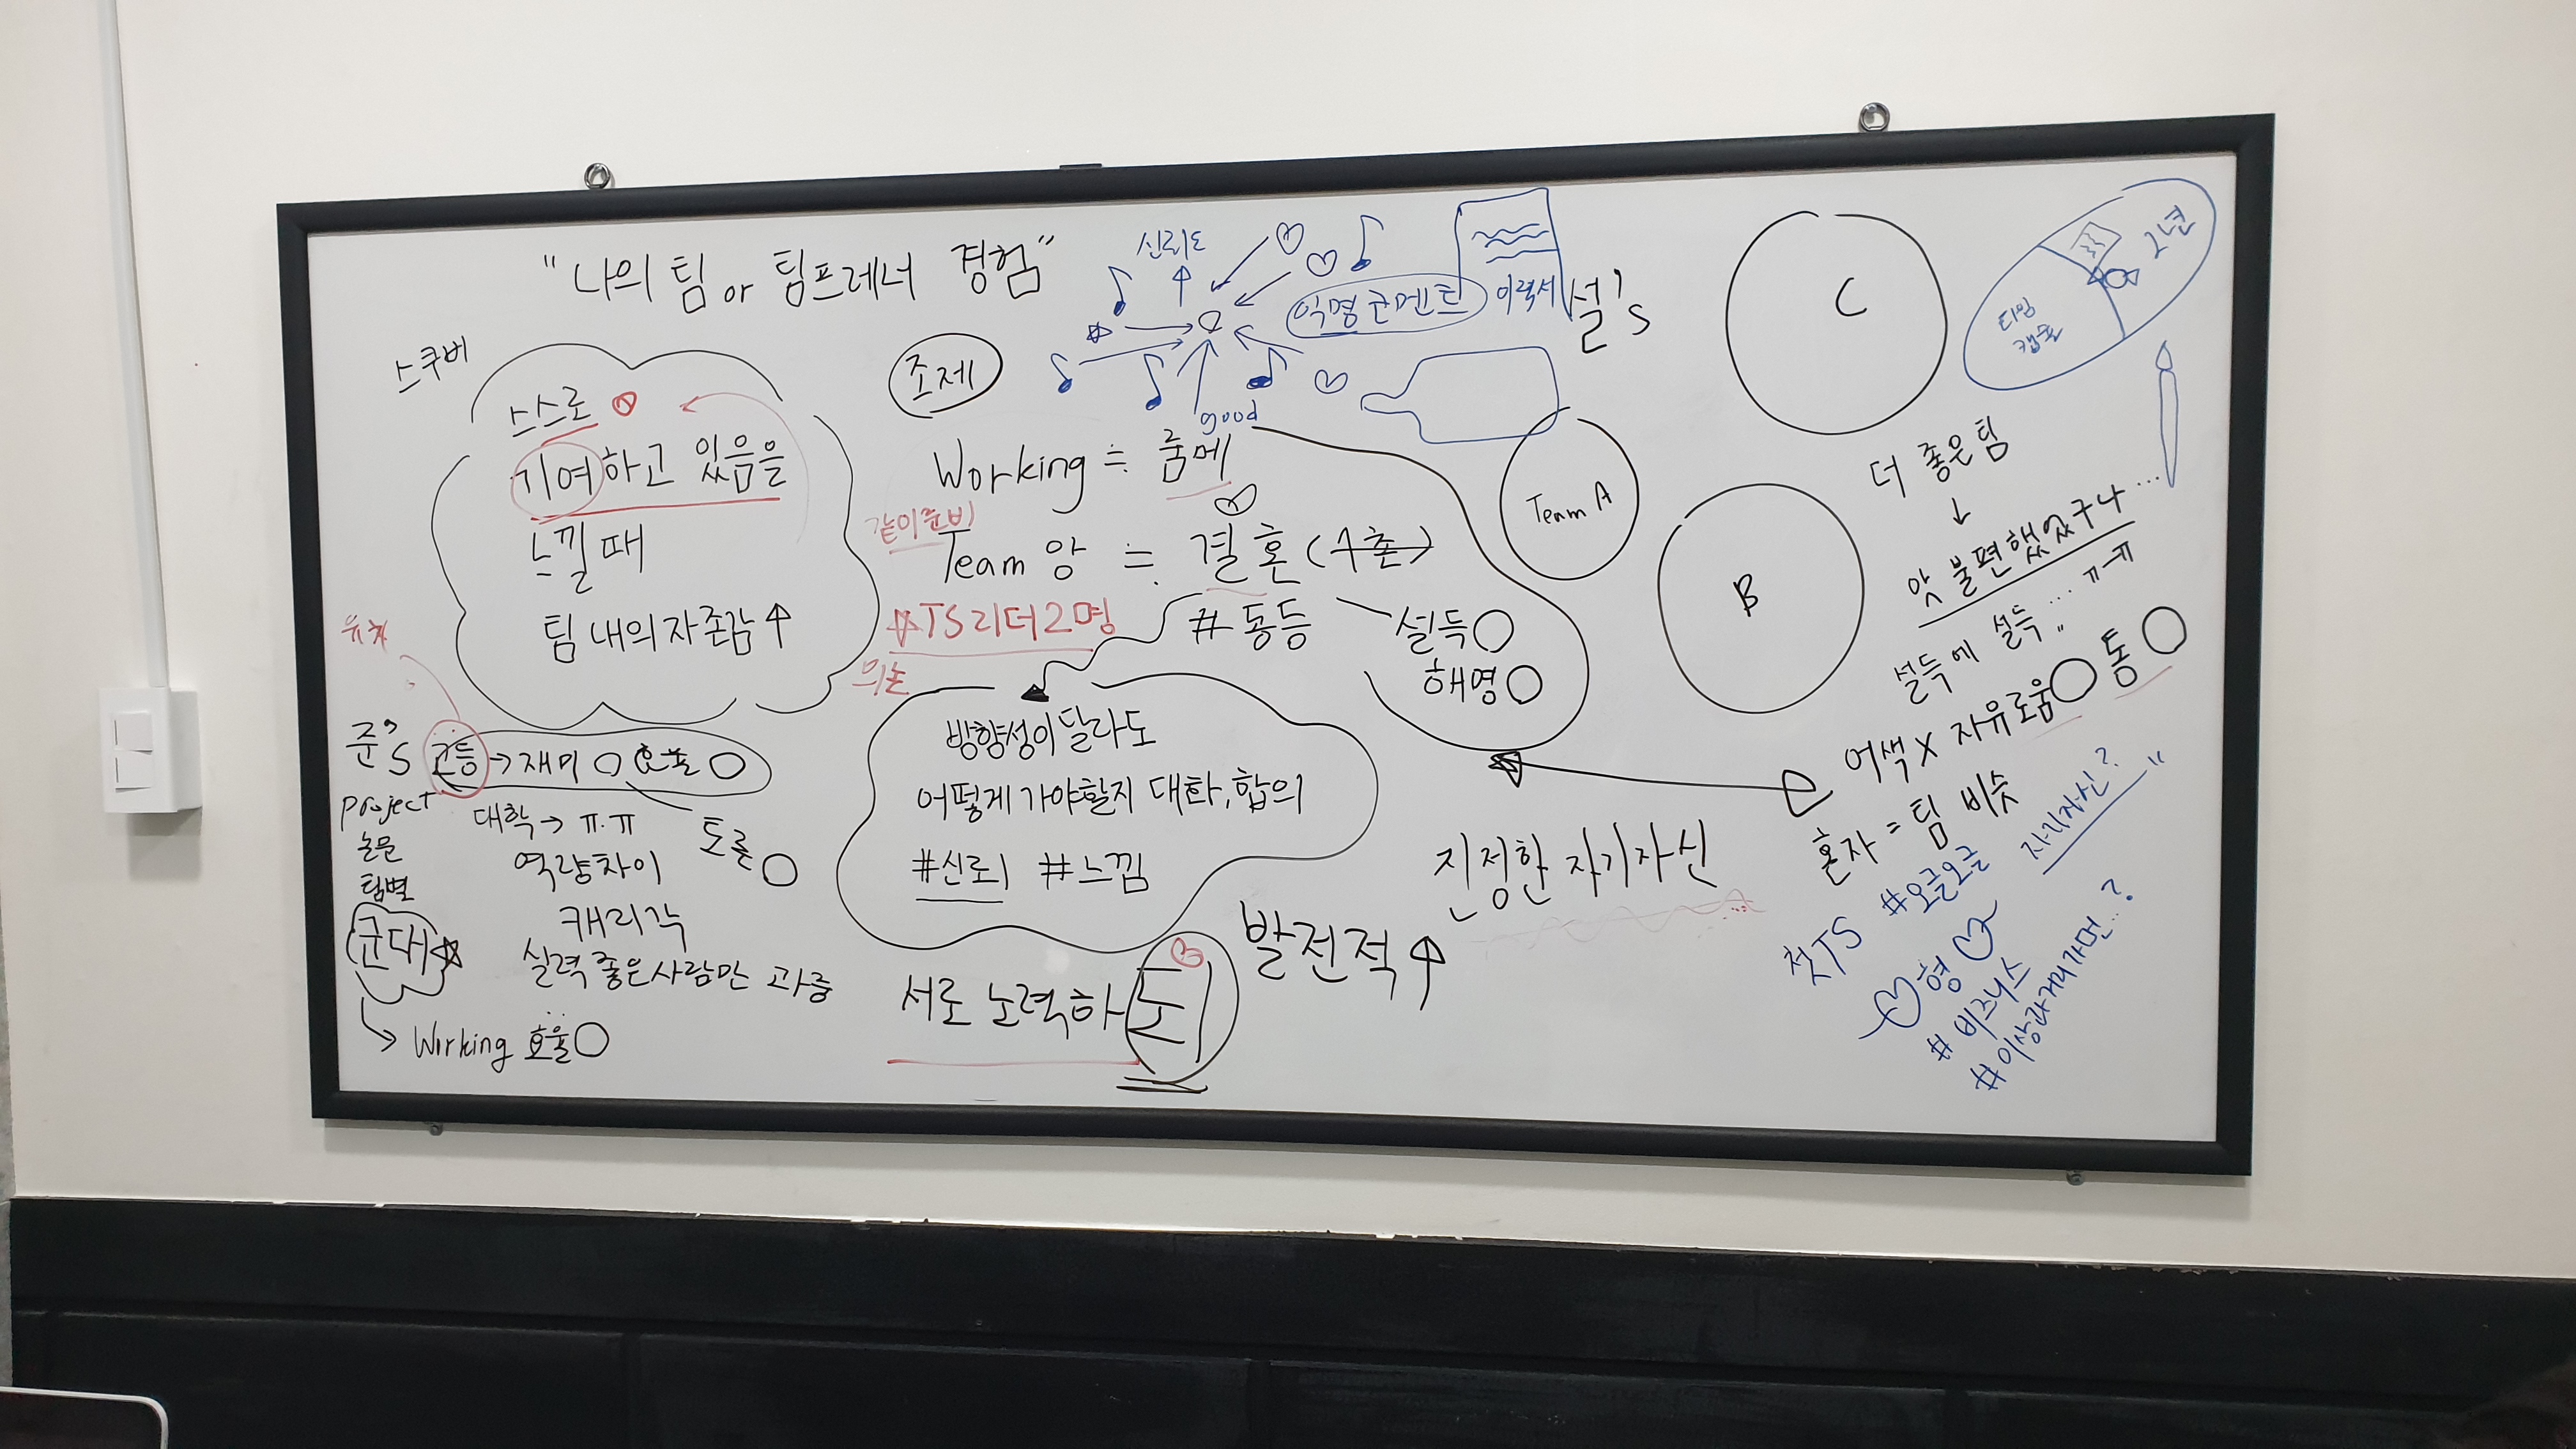 "나의 팀 or 팀프레너 경험"
스쿠버
스스로
기여하고 있음을
느낄 때
팀 내의 자존감 ↑
준's
고등 → 재미 ○ 효율 ○
project
논문
팀별
군대
→ Working 효율 ○
대학 → ㅠ.ㅠ
역량차이
캐리각
실력 좋은 사람만 과중
토론 ○
조제
신뢰도
↑
good
익명 코멘트
이력서
설's
Working ≒ 룸메
같이 준비
Team 앙 ≒ 결혼 (4촌)
TS 리더 2명
의논
# 동등
설득 ○
해명 ○
방향성이 달라도
어떻게 가야할지 대화, 합의
#신뢰 #느낌
서로 노력하는
발전적 ↑
Team A
B
C
타임
캡슐
2년
더 좋은 팀
↓
앗 불편했었구나...
설득에 설득.... ㅠㅠ
어색 X 자유로움 ○ 통 ○
혼자 = 팀 비슷
진정한 자기자신
자기자신?"
첫 TS #오글오글
형
# 비즈니스
# 이상과 거리가 먼..?